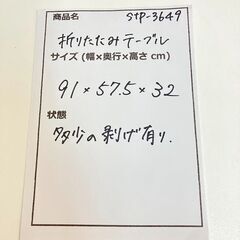 商品名 stp-3649
折りたたみテーブル
サイズ (幅×奥行×高さ cm)
91×57.5×32
状態
多少の剥げ有り.